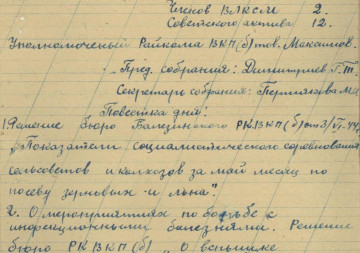 Членов ВЛКСМ 2.
Советского актива 12.
Уполномоченый Райкома ВКП(б) тов. Максимов.
Пред. собрания: Димитриев Г.Т.
Секретарь собрания: Пермякова М.
Повестка дня:
1. Решение бюро Балезинского РК ВКП(б) от 3/VI-44г
"Показатели социалистического соревнования
сельсоветов и колхозов за май месяц по
посеву зерновых и льна".
2. О мероприятиях по борьбе с
инфекционными болезнями. Решение
бюро РК ВКП(б) „О вспышке